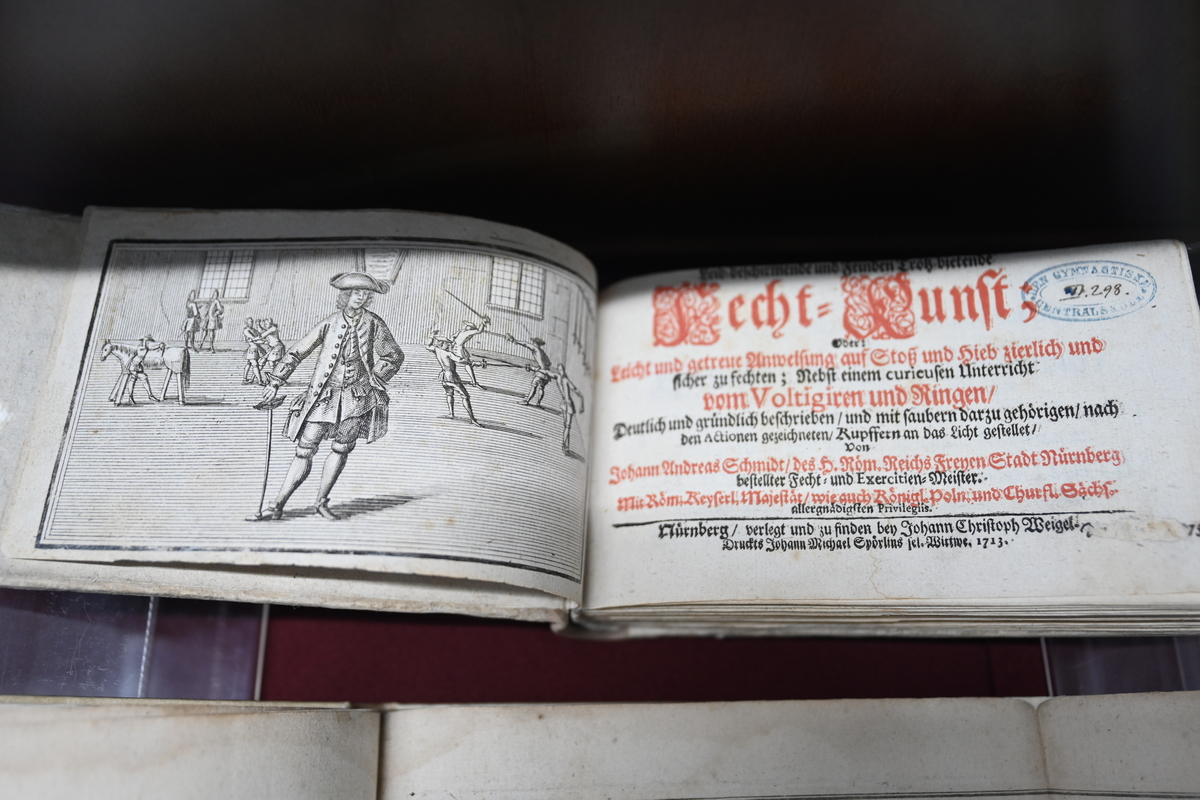 Leib-beschirmende und Feinden Trotz-bietende
Fecht-Kunst;
Oder:
Leicht und getreue Anweisung auf Stoß und Hieb zierlich und
sicher zu fechten; Nebst einem curieusen Unterricht
vom Voltigiren und Ringen/
Deutlich und gründlich beschrieben/ und mit saubern darzu gehörigen/ nach
den Actionen gezeichneten/ Kupffern an das Licht gestellet/
Von
Johann Andreas Schmidt/ des H. Röm. Reichs Freyen Stadt Nürnberg
bestellter Fecht- und Exercitien-Meister.
Mit Röm. Keyserl. Majestät/ wie auch Königl. Poln. und Churfl. Sächs.
allergnädigsten Privilegiis.
Nürnberg/ verlegt und zu finden bey Johann Christoph Weigel.
Druckts Johann Michael Spörlins sel. Wittwe. 1713.
GYMNASTISKA
298.
CENTRAL